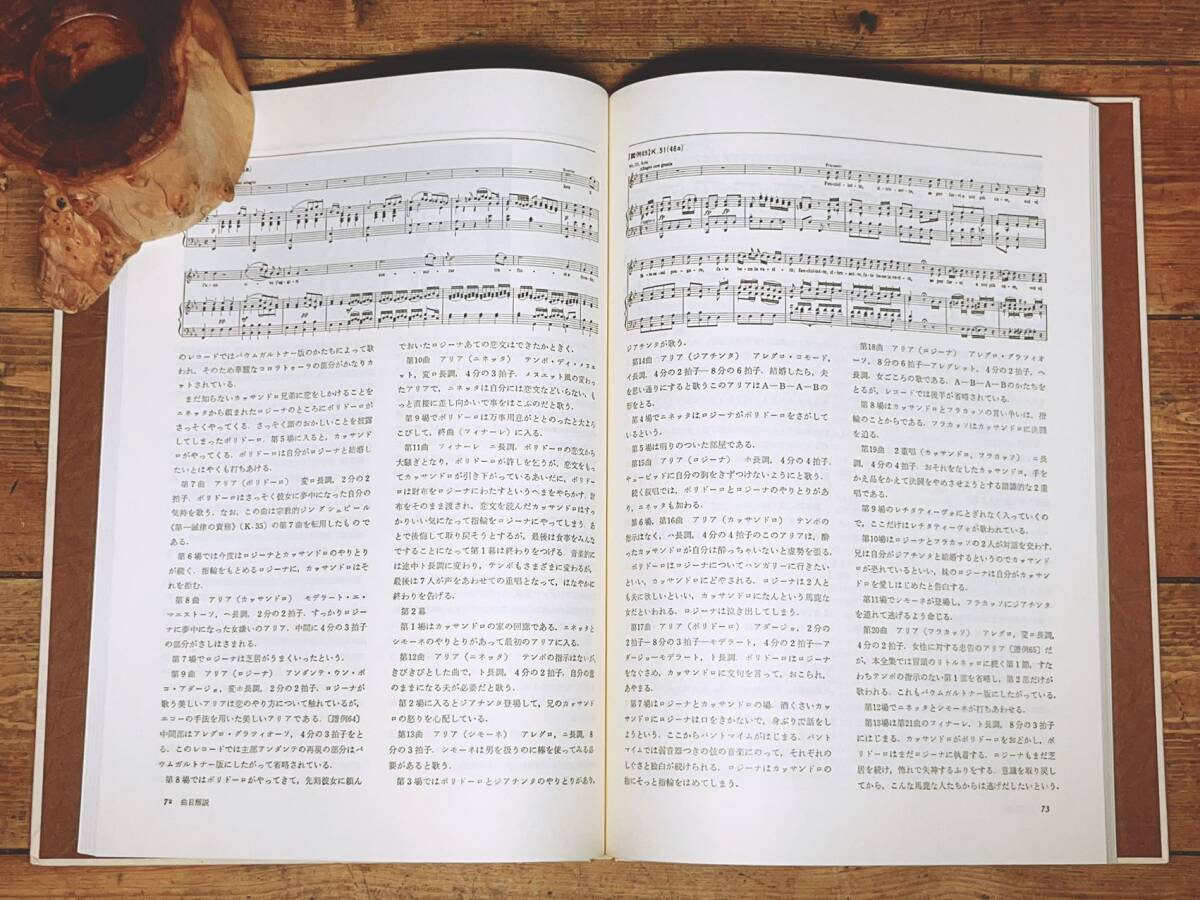 のレコードではバウムガルトナー版のかたちによって歌
われ，そのため華麗なコロラトゥーラの部分がかなりカ
ットされている．
まだ知らないカッサンドロ兄弟に恋をしかけることを
ニネッタから頼まれたロジーナのところにポリドーロが
さっそくやってくる．さっそく頭のおかしいことを披露
してしまったポリドーロ．第5場に入ると，カッサンド
ロがやってくる．ポリドーロは自分がロジーナと結婚し
たいとはやくも打ちあける．
第7曲　アリア（ポリドーロ）　変ロ長調，2分の2
拍子．ポリドーロはさっそく彼女に夢中になった自分の
気持を歌う．なお，この曲は宗教的ジングシュピール
《第一誡律の責務》（K.35）の第7曲を転用したもので
ある．
第6場では今度はロジーナとカッサンドロのやりとり
が続く．指輪をもとめるロジーナに，カッサンドロはそ
れを拒む．
第8曲　アリア（カッサンドロ）　モデラート・エ・
マエストーソ，ヘ長調，2分の2拍子．すっかりロジー
ナに夢中になった女嫌いのアリア．中間に4分の3拍子
の部分がさしはさまれる．
第7場でロジーナは芝居がうまくいったという．
第9曲　アリア（ロジーナ）　アンダンテ・ウン・ポ
コ・アダージョ，変ホ長調，2分の2拍子．ロジーナが
歌う美しいアリアは恋のやり方について触れているが，
エコーの手法を用いた美しいアリアである．〔譜例64〕
中間部はアレグロ・グラツィオーソ，4分の3拍子をと
る．このレコードでは主部アンダンテの再現の部分はバ
ウムガルトナー版にしたがって省略されている．
第8場ではポリドーロがやってきて，先刻彼女に頼ん
でおいたロジーナあての恋文はできたかときく．
第10曲　アリア（ニネッタ）　テンポ・ディ・メヌエ
ット，変ロ長調，4分の3拍子．メヌエット風の変わっ
たアリアで，ニネッタは自分には恋文などいらない，も
っと直接に差し向かいで事をはこぶのだと歌う．
第9場でポリドーロは万事用意がととのったと大よろ
こびして，終曲（フィナーレ）に入る．
第11曲　フィナーレ　ニ長調．ポリドーロの恋文から
大騒ぎとなり，ポリドーロが許しを乞うが，恋文をもっ
てカッサンドロが引き下がっているあいだに，ポリドー
ロは財布をロジーナにわたすというへまをやらかす．財
布をそのまま渡され，恋文を読んだカッサンドロはすっ
かりいい気になって指輪をロジーナにやってしまう．あ
とで後悔して取り戻そうとするが，最後は食事をみんな
ですることになって第1幕は終わりをつげる．音楽的に
は途中ト長調に変わり，テンポもさまざまに変わるが，
最後は7人が声をあわせての重唱となって，はなやかに
終わりを告げる．
第2幕
第1場はカッサンドロの家の回廊である．ニネッタと
シモーネのやりとりがあって最初のアリアに入る．
第12曲　アリア（ニネッタ）　テンポの指示はないが，
きびきびとした曲で，ト長調，4分の3拍子．自分の意
のままになる夫が必要だと歌う．
第2場に入るとジアチンタ登場して，兄のカッサンド
ロの怒りを心配している．
第13曲　アリア（シモーネ）　アレグロ，ニ長調，8
分の3拍子．シモーネは男を扱うのに棒を使ってみる必
要があると歌う．
第3場ではポリドーロとジアチンタのやりとりがあり，
72　曲目解説
〔譜例65〕K.51(46a)
ジアチンタが歌う．
第14曲　アリア（ジアチンタ）　アレグロ・コモード，
イ長調，4分の2拍子―8分の6拍子．結婚したら，夫
を思い通りにすると歌うこのアリアはA―B―A―Bの
形をとる．
第4場でニネッタはロジーナがポリドーロをさがして
いるという．
第5場は明りのついた部屋である．
第15曲　アリア（ロジーナ）　ホ長調，4分の4拍子．
キューピッドに自分の胸をきずつけないようにと歌う．
続く叙唱では，ポリドーロとロジーナのやりとりがあ
り，ニネッタも加わる．
第6場，第16曲　アリア（カッサンドロ）　テンポの
指示はなく，ハ長調，4分の4拍子のこのアリアは，酔
ったカッサンドロが自分は酔っちゃいないと虚勢を張る．
ポリドーロはロジーナについてハンガリーに行きたい
といい，カッサンドロにどやされる．ロジーナは2人と
も夫に欲しいといい，カッサンドロになんという馬鹿な
女だといわれる．ロジーナは泣き出してしまう．
第17曲　アリア（ポリドーロ）　アダージョ，2分の
2拍子―8分の3拍子―モデラート，4分の2拍子―ア
ダージョ―モデラート，ト長調．ポリドーロはロジーナ
をなぐさめ，カッサンドロに文句を言って，おこられ，
あやまる．
第7場はロジーナとカッサンドロの場．酒くさいカッ
サンドロにロジーナは口をきかないで，身ぶりで話をし
ようという．ここからパントマイムがはじまる．パント
マイムでは弱音器つきの弦の音楽にのって，それぞれの
しぐさと独白が続けられる．ロジーナはカッサンドロの
指にそっと指輪をはめてしまう．
第18曲　アリア（ロジーナ）　アレグロ・グラツィオ
ーソ，8分の6拍子―アレグレット，4分の2拍子，ヘ
長調．女ごころの歌である．A―B―A―Bのかたちを
とるが，レコードでは後半が省略されている．
第8場はカッサンドロとフラカッソの言い争いは，指
輪のことからである．フラカッソはカッサンドロに決闘
を迫る．
第19曲　2重唱（カッサンドロ，フラカッソ）　ニ長
調，4分の4拍子．おそれをなしたカッサンドロ，手を
かえ品をかえて決闘をやめさせようとする諧謔的な2重
唱である．
第9場のレチタティーヴォにとぎれなく入っていくの
で，ここだけはレチタティーヴォが歌われている．
第10場はロジーナとフラカッソの2人が対話を交わす．
兄は自分がジアチンタと結婚するというのでカッサンド
ロが恐れているといい，妹のロジーナは自分がカッサン
ドロを愛しはじめたと告白する．
第11場でシモーネが登場し，フラカッソにジアチンタ
を連れて逃げるよう命じる．
第20曲　アリア（フラカッソ）　アレグロ，変ロ長調，
4分の2拍子．女性に対する忠告のアリア〔譜例65〕だ
が，本全集では冒頭のリトルネッロに続く第1節，すな
わちテンポの指示のない第1節を省略し，第2部だけが
歌われる．これもバウムガルトナー版にしたがっている．
第12場でニネッタとシモーネが打ちあわせる．
第13場は第21曲のフィナーレ，ト長調，8分の3拍子
にはじまる．カッサンドロがポリドーロをおどかし，ポ
リドーロはまだロジーナに執着する．ロジーナもまだ芝
居を続け，怖れで失神するふりをする．意識を取り戻し
てから，こんな馬鹿な人たちからは逃げだしたいという．
73